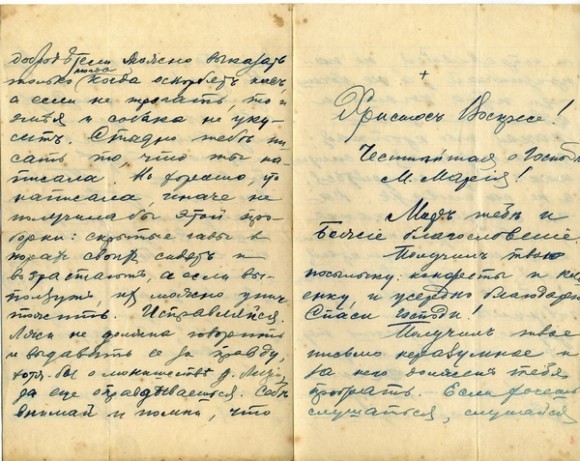 добродѣтели можно выказать
только тогда когда оскорбятъ насъ,
а если не трогать, то и
змѣя и собака не уку-
ситъ. Стыдно тебѣ пи-
сать то, что ты на-
писала. Но хорошо, что
написала, иначе не
получила бы этой про-
борки: скрытые гады в
норах своих сидятъ и
возрастаютъ, а если вы-
ползутъ, их можно унич-
тожить. Исправляйся.
Лжи не должна говорить
и выдавать ее за правду,
хотя бы о монашествѣ д.
да еще оправдываешься.
внимай и помни, что
+
Христосъ Воскресе!
Честнѣйшая о Господѣ
М. Марія!
Миръ тебѣ и
Божіе благословеніе
Получилъ твою
посылочку: конверты и
и усердно благодарю.
Спаси Господи!
Получилъ твое
письмо неразумное и
за него долженъ тебя
пробрать. Если хочешь
слушаться, слушайся